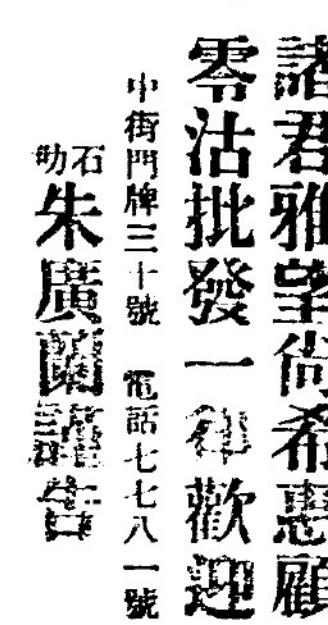 諸君雅望尚希惠顧
零沽批發一律歡迎
中街門牌三十號 電話七七八一號
石叻
朱廣蘭謹告